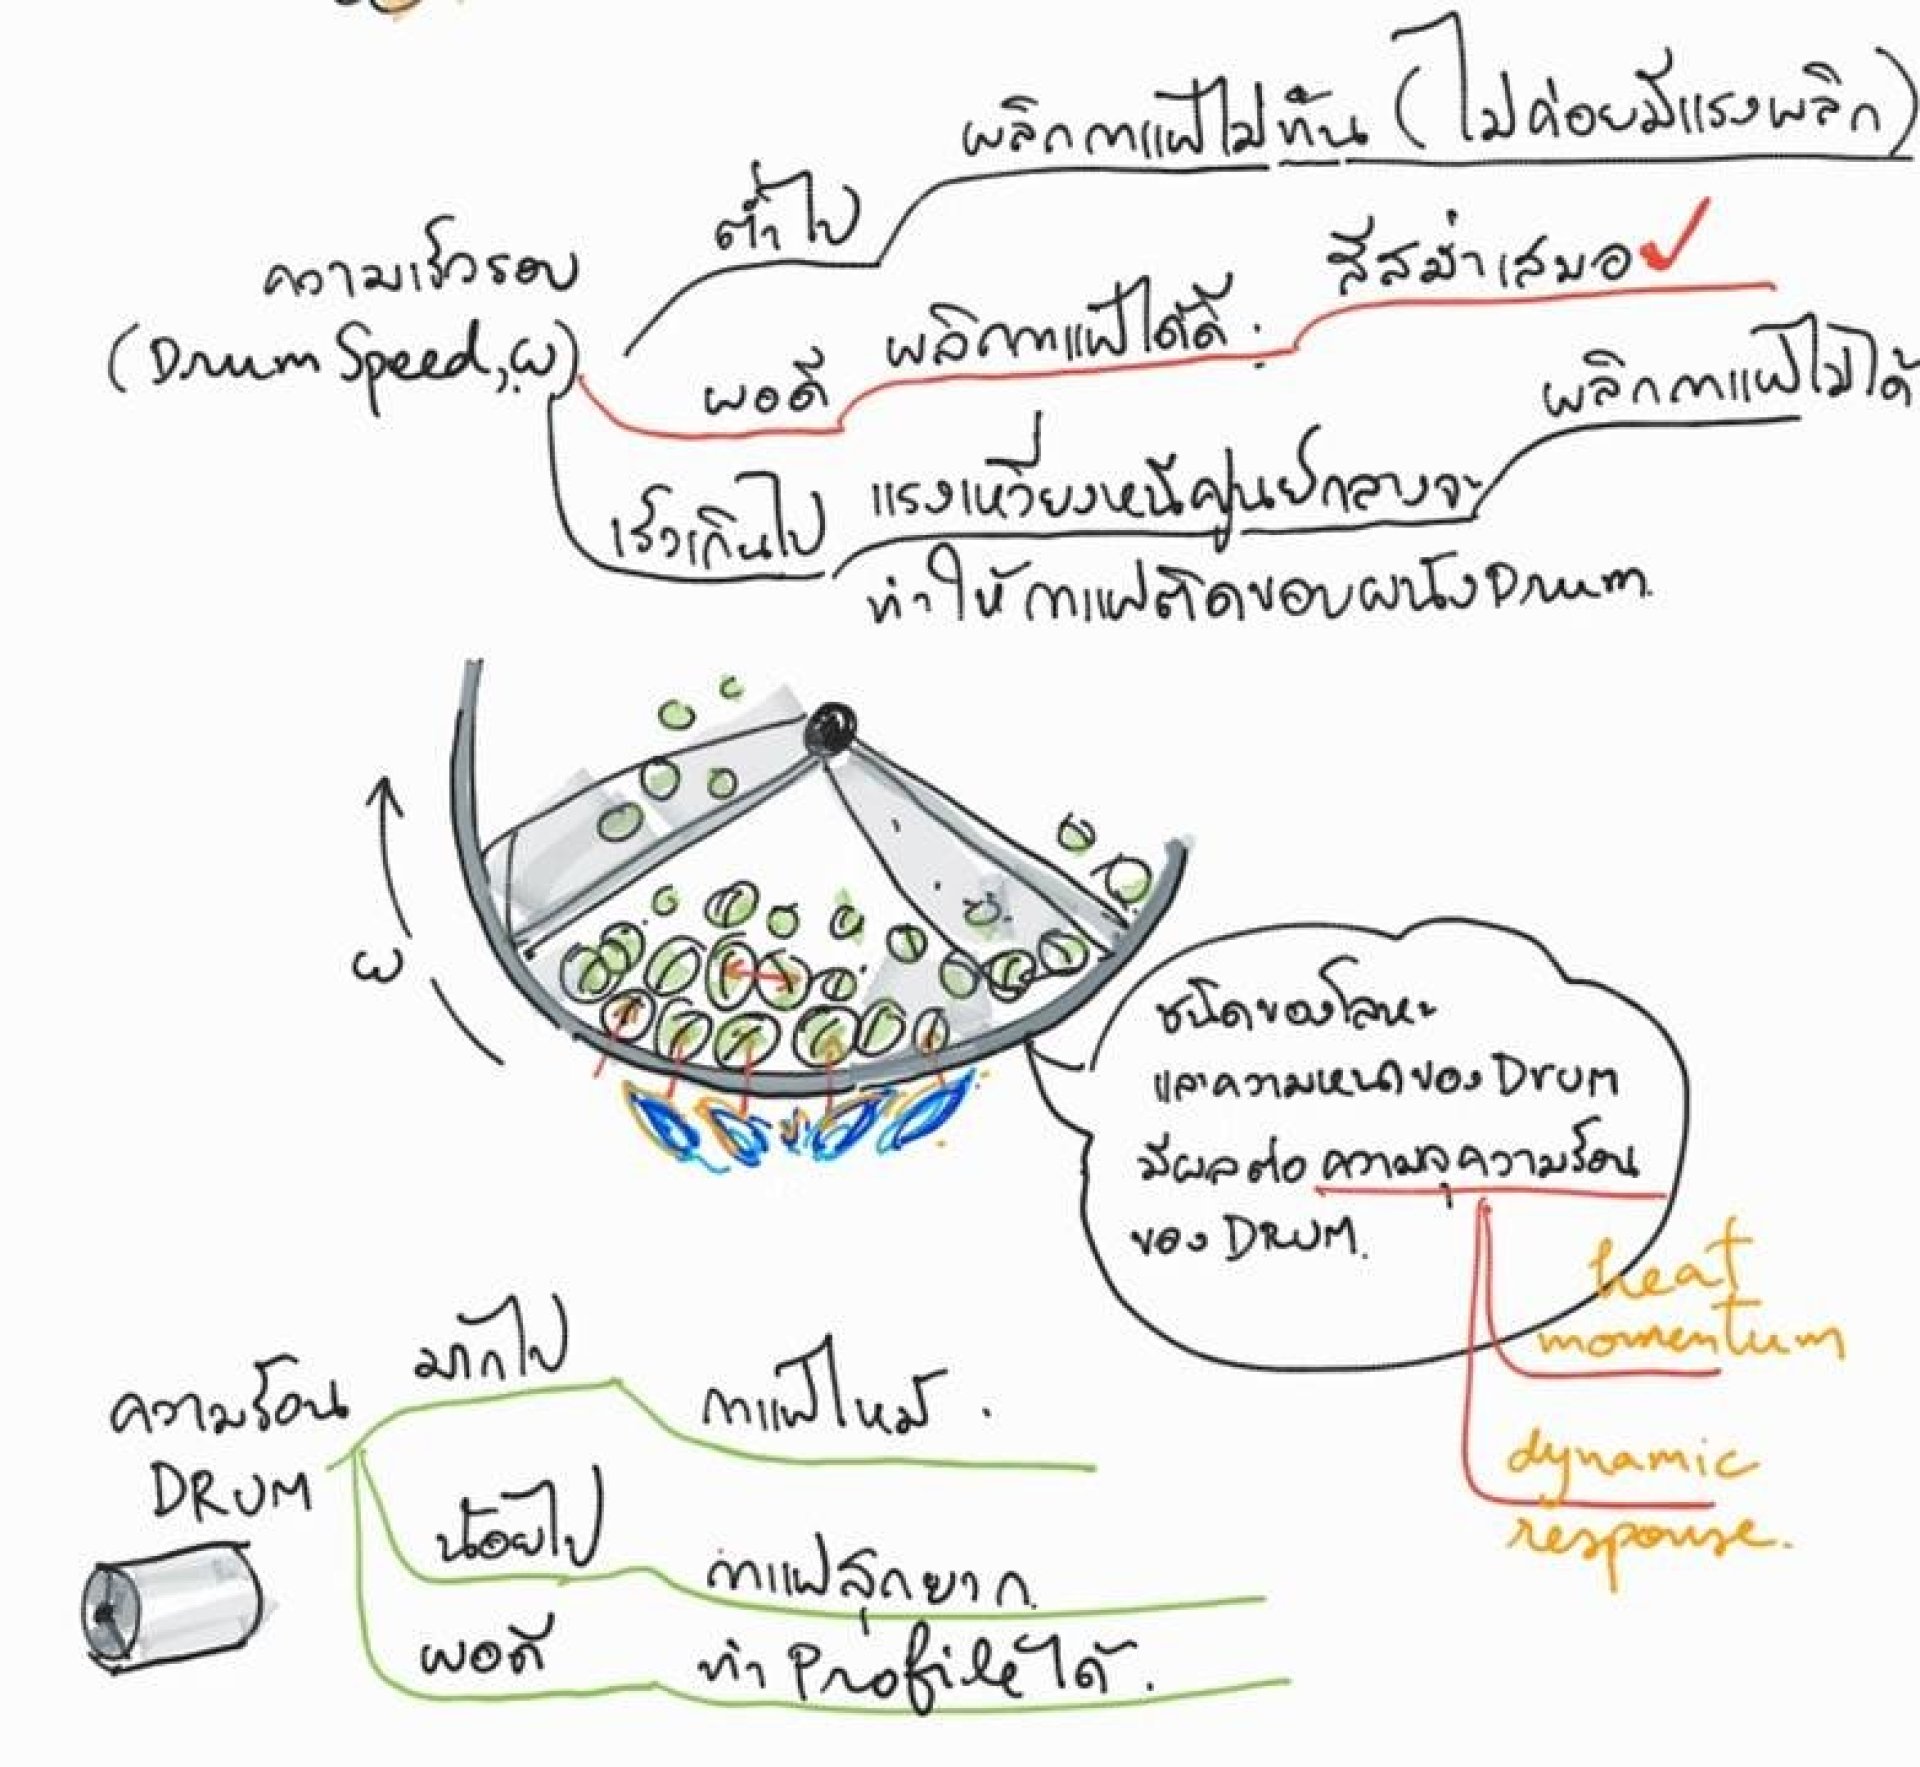 ผลิกกาแฟไม่ทัน (ไม่ค่อยมีแรงพลิก)
ต่ำไป
ความเร็วรอบ
(Drum Speed, ω)
สีสม่ำเสมอ ✓
พลิกกาแฟได้ดี.
พอดี
พลิกกาแฟไม่ได้
เร็วเกินไป
แรงเหวี่ยงหนีศูนย์กลางจะ
ทำให้กาแฟติดขอบผนัง Drum.
ω
ชนิดของโลหะ
และความหนาของ Drum
มีผลต่อ ความจุความร้อน
ของ DRUM.
heat
momentum
dynamic
response.
ความร้อน
DRUM
มากไป
กาแฟไหม้.
น้อยไป
กาแฟสุกยาก.
พอดี
ทำ Profile ได้.